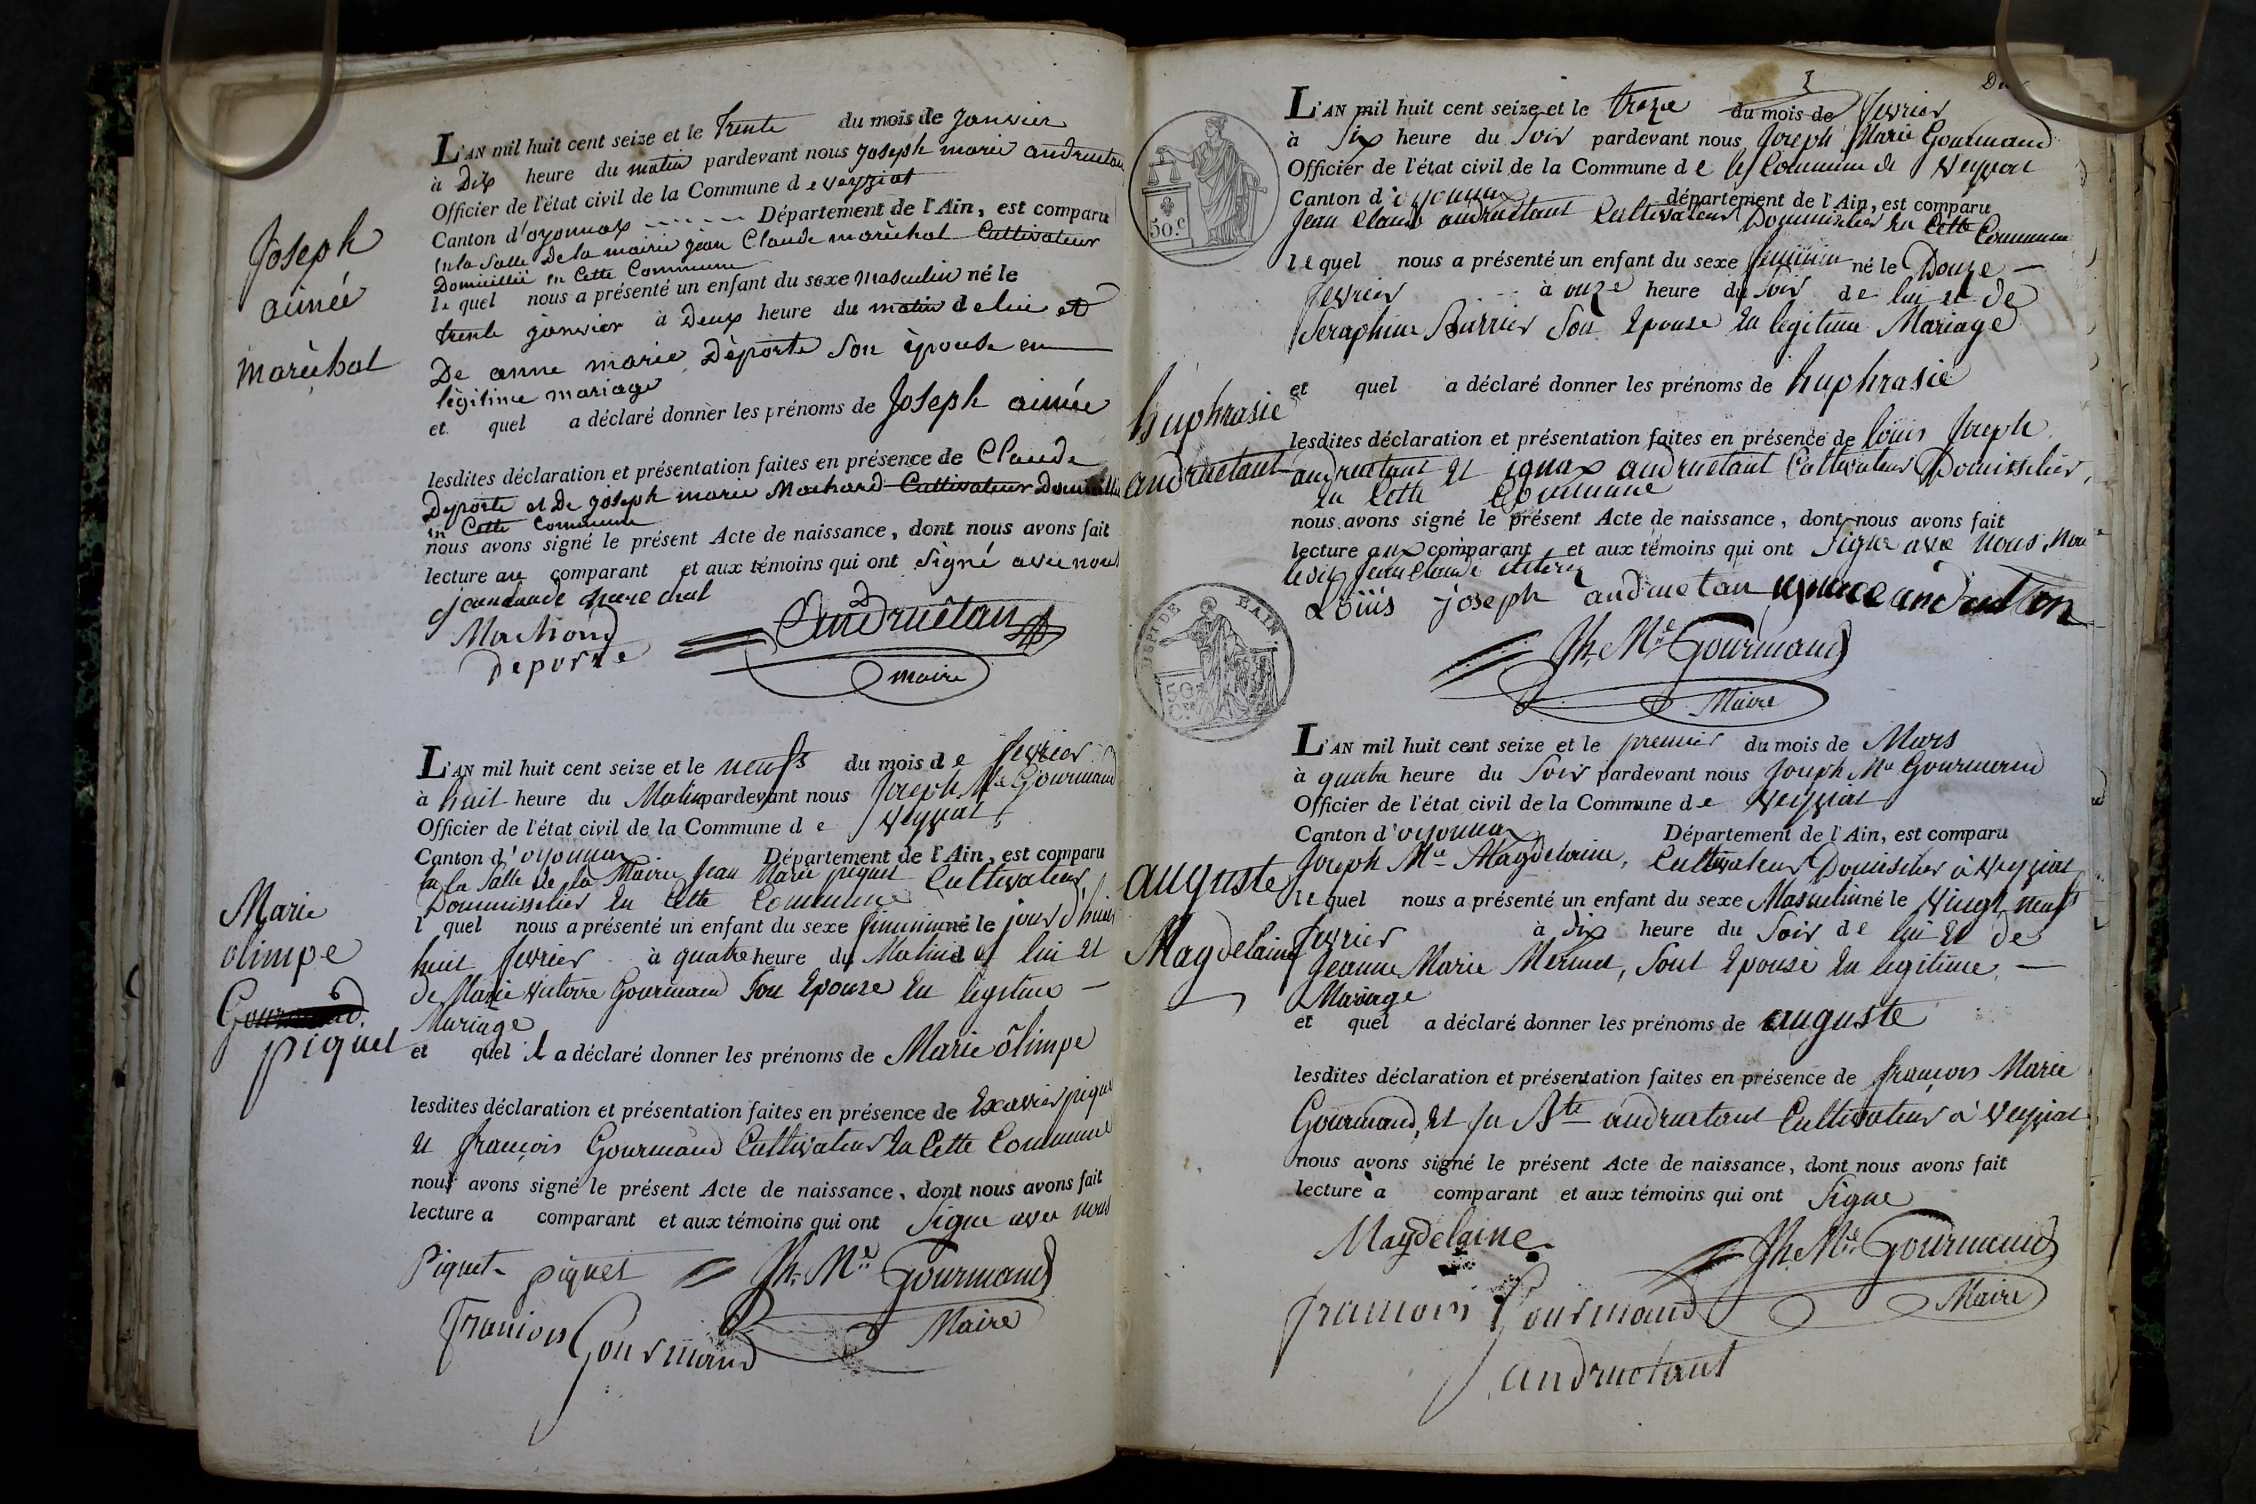 Joseph
aimée
maréchal
L'AN mil huit cent seize et le trente du mois de janvier
à Dix heure du matin pardevant nous joseph marie andruetan
Officier de l'état civil de la Commune de veyziat
Canton d'oyonnax Département de l'Ain, est comparu
en la Salle De la mairie jean Claude maréchal Cultivateur
Domicillié en Cette Commune
le quel nous a présenté un enfant du sexe masculin né le
trente janvier à Deux heure du matin de lui et
De anne marie Déporte Son épouse en
légitime mariage
et quel a déclaré donner les prénoms de Joseph aimée
lesdites déclaration et présentation faites en présence de Claude
Déporte et De joseph marie Mathard Cultivateur
en Cette Commune
nous avons signé le présent Acte de naissance, dont nous avons fait
lecture au comparant et aux témoins qui ont Signé avec nous
Déporte
Andruétan
maire
Marie
olimpe
piquet
L'AN mil huit cent seize et le neufs du mois de fevrier
à huit heure du Matin pardevant nous Joseph Mie Gourmand
Officier de l'état civil de la Commune de Veyziat
Canton d'oyonnax Département de l'Ain, est comparu
en la Salle de la Mairie Jean Marie piquet Cultivateur,
Dommisselier en Cette Commune
l quel nous a présenté un enfant du sexe feminin né le jour d'huit
huit fevrier à quatre heure du Matin de lui et
de Marie victoire Gourmand Son Epouse en legitime
Mariage
et quel il a déclaré donner les prénoms de Marie ôlimpe
lesdites déclaration et présentation faites en présence de Exavier piquet
et françois Gourmand Cultivateur en Cette Commune
nous avons signé le présent Acte de naissance, dont nous avons fait
lecture a comparant et aux témoins qui ont Signe avec nous
Piquet piquet Jh. Mie Gourmand
Maire
francois Gourmand
50.c
L'AN mil huit cent seize et le treze du mois de fevrier
à Six heure du Soir pardevant nous Joseph Marie Gourmand
Officier de l'état civil de la Commune de les Commune de Veyziat
Canton d'oyonnax département de l'Ain, est comparu
Jean Claude andruetant Cultivateur Dommisselier en Cette Commune
le quel nous a présenté un enfant du sexe feminin né le Douze
fevrier à onze heure du Soir de lui et de
Seraphine Burrier Son Epouse en legitime Mariage
et quel a déclaré donner les prénoms de huphrasie
huphrasie
andruetant
lesdites déclaration et présentation faites en présence de loüis Joseph
andruetant et ignax andruetant Cultivateur Domisselier,
en Cette Commune
nous avons signé le présent Acte de naissance, dont nous avons fait
lecture aux comparant et aux témoins qui ont Signe avec nous, non
Loüis joseph andruetan
Jh. Mie Gourmand
Maire
L'AN mil huit cent seize et le premier du mois de Mars
à quatre heure du Soir pardevant nous Joseph Mie Gourmand
Officier de l'état civil de la Commune de Veyziat
Canton d'oyonnax Département de l'Ain, est comparu
Joseph Mie Magdelaine, Cultivateur Domisselier à Veyziat
auguste
Magdelaine
le quel nous a présenté un enfant du sexe Masculin né le Vingt neufs
fevrier à dix heure du Soir de lui et de
Jeanne Marie Mermet, Sont Epouse en legitime
Mariage
et quel a déclaré donner les prénoms de auguste
lesdites déclaration et présentation faites en présence de françois Marie
Gourmand, et Jn Bte andruetant Cultivateur à Veyziat
nous avons signé le présent Acte de naissance, dont nous avons fait
lecture a comparant et aux témoins qui ont Signe
Magdelaine
Jh. Mie Gourmand
Maire
francois Gourmand
andruetant